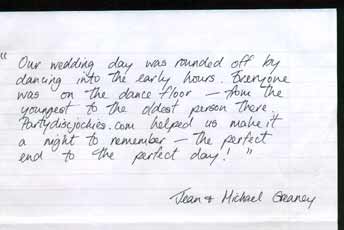 "Our wedding day was rounded off by
dancing into the early hours. Everyone
was on the dance floor – from the
youngest to the oldest person there.
Partydiscjockies.com helped us make it
a night to remember – the perfect
end to the perfect day!"
Jean & Michael Greaney